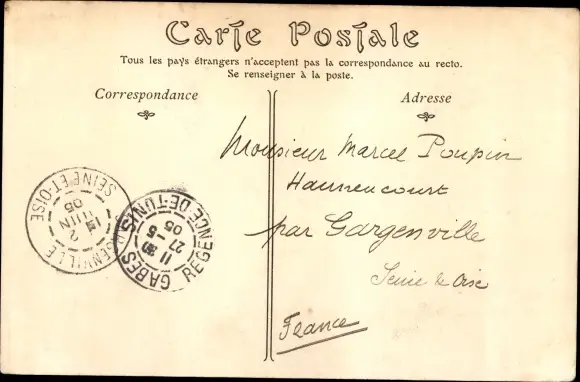 Carte Postale
Tous les pays étrangers n'acceptent pas la correspondance au recto.
Se renseigner à la poste.
Correspondance
Adresse
Monsieur Marcel Poupin
Hanneucourt
par Gargenville
Seine & Oise
France
SEINE-ET-OISE
2
JUIN
05
GABES
REGENCE DE TUNIS
21-5
05